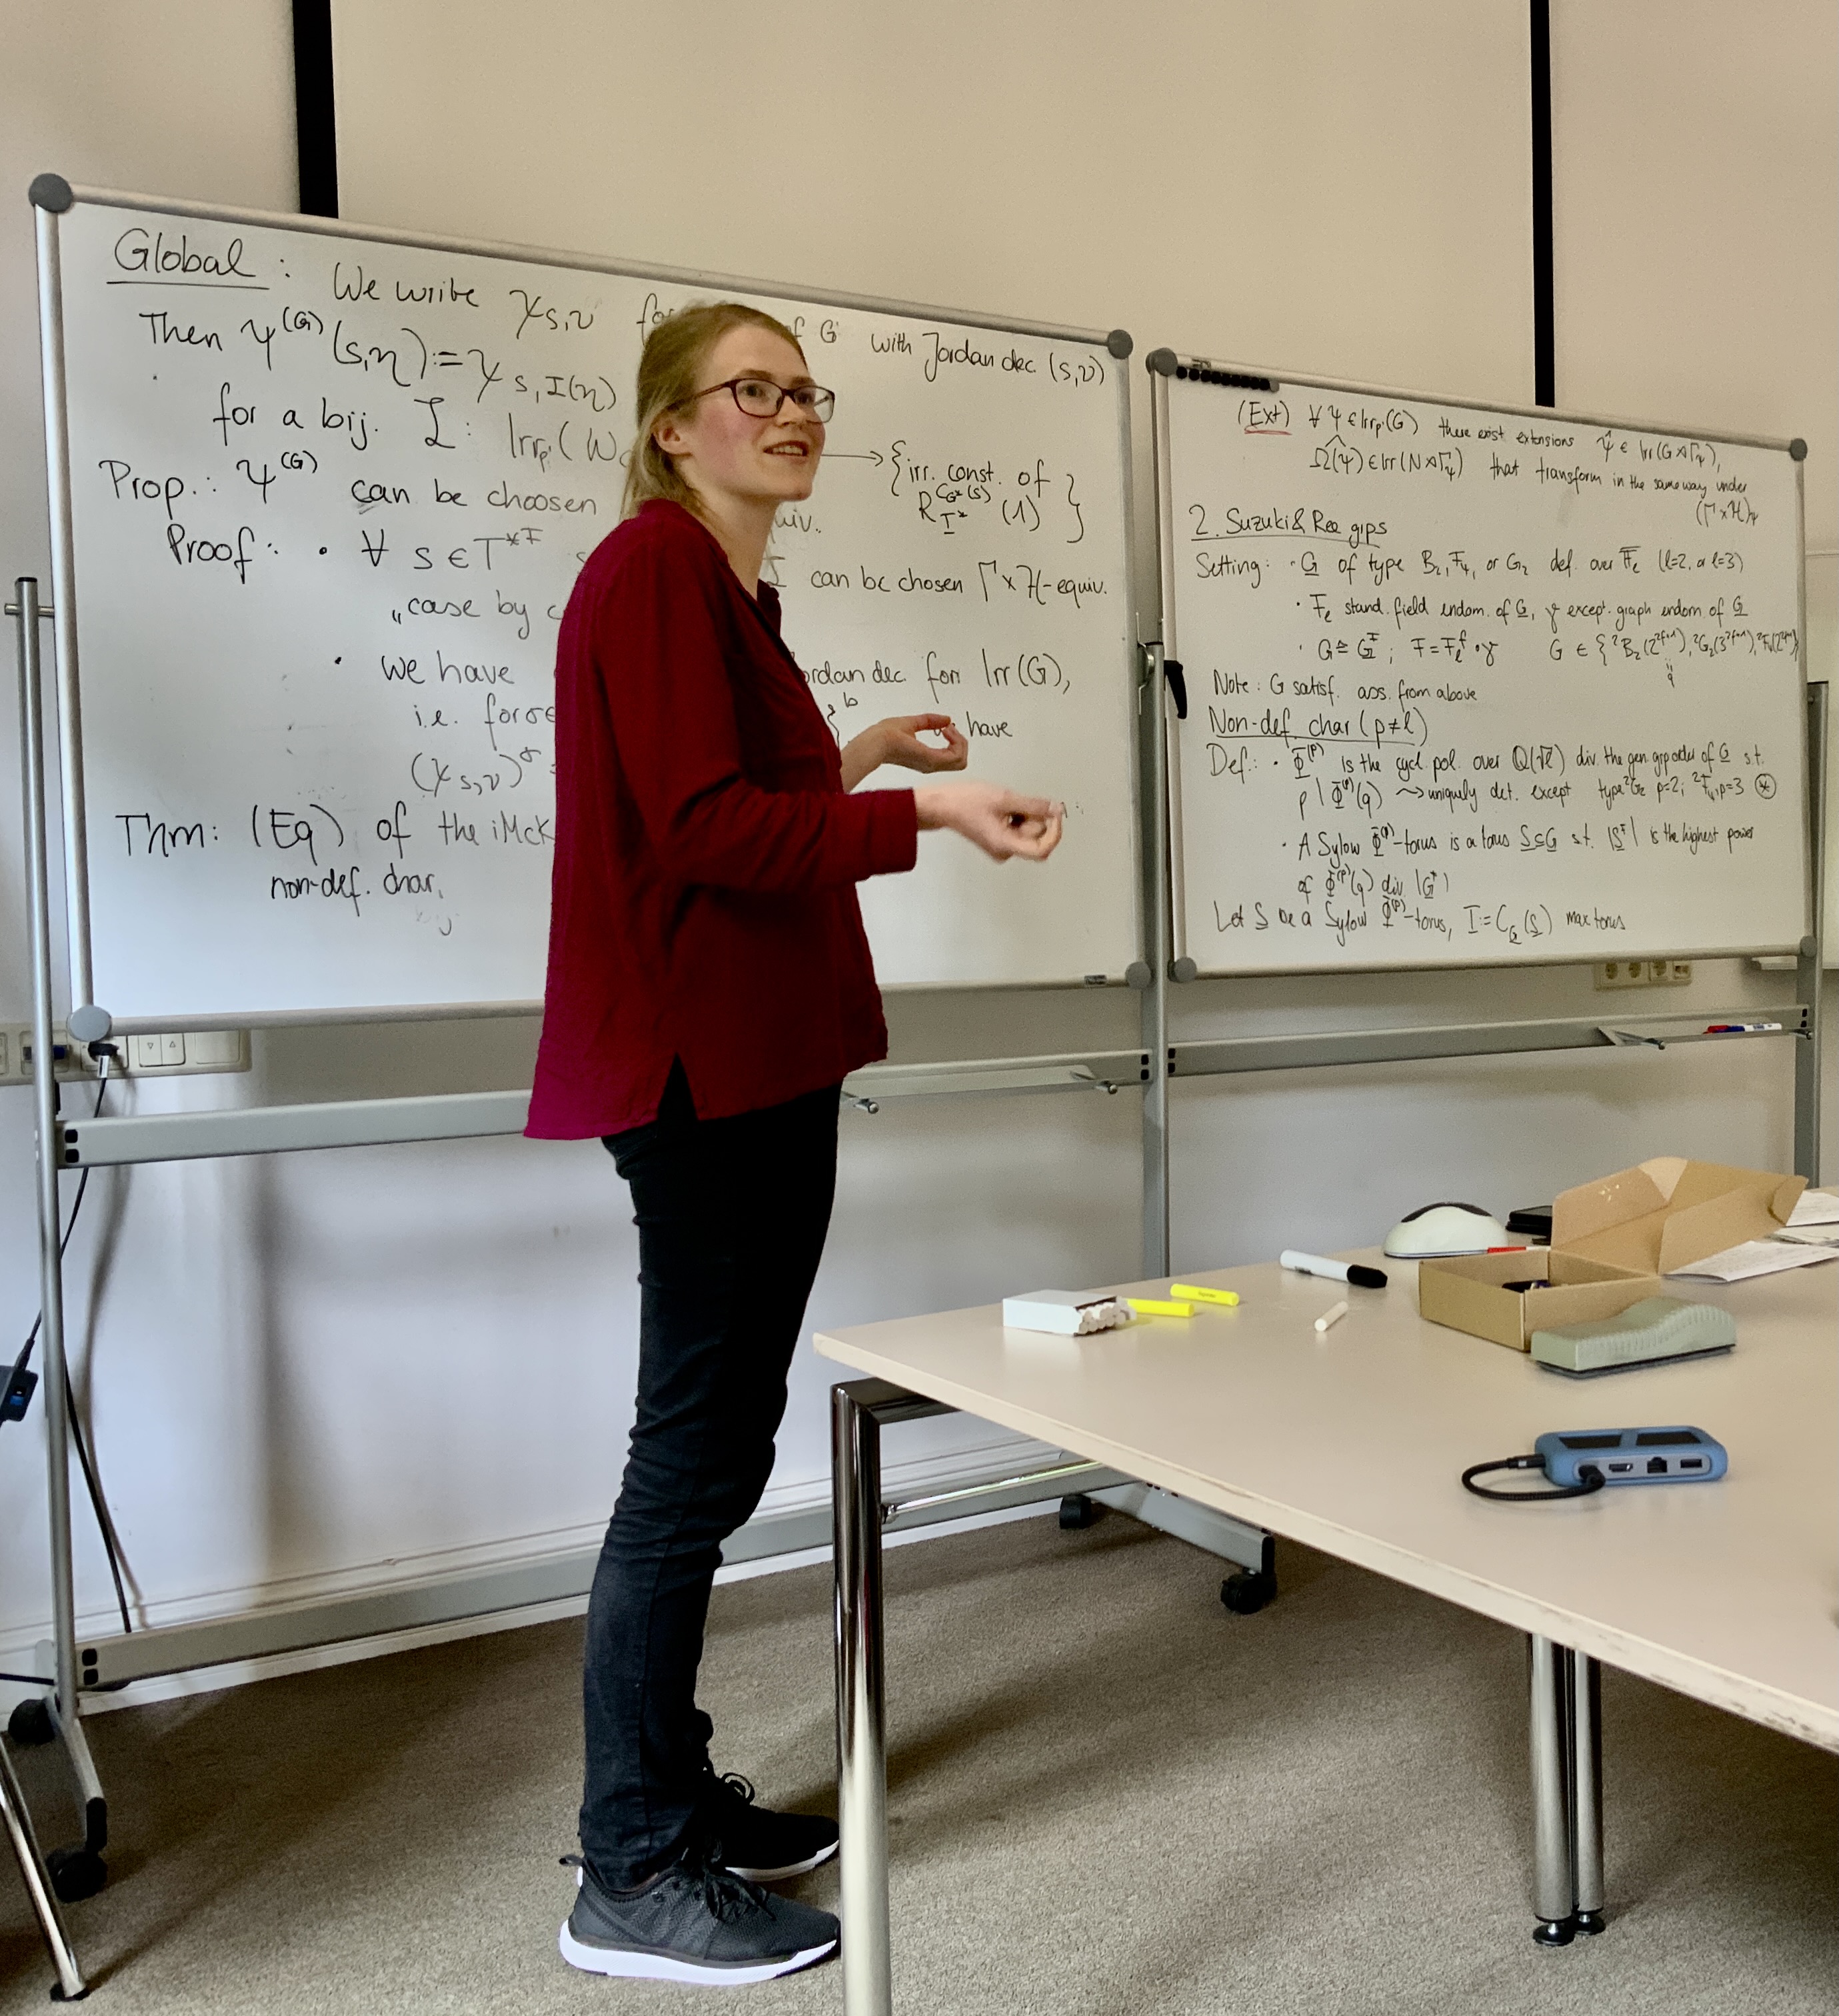 Global: We write χ_{s,ν} of G with Jordan dec (s,ν)
Then Ψ^{(G)}(s,η) := χ_{s,I(η)}
for a bij. I: Irr_{p'}(W → {irr. const. of R_{T*}^{C_{G*}(s)}(1)}
Prop.: Ψ^{(G)} can be choosen
Proof: • ∀ s ∈ T*^F I can be chosen Γ×H-equiv.
„case by
• we have Jordan dec. for Irr(G),
i.e. for σ∈ have
(χ_{s,ν})^σ
Thm: (Eq) of the iMcK
non-def. char.
(Ext) ∀ Ψ ∈ Irr_{p'}(G) there exist extensions Ψ̂ ∈ Irr(G⋊Γ_Ψ),
Ω̂(Ψ) ∈ Irr(N⋊Γ_Ψ) that transform in the same way under
(Γ×H)_Ψ
2. Suzuki & Ree grps
Setting: • G of type B₂, F₄, or G₂ def. over F̅_ℓ (ℓ=2, or ℓ=3)
• F_ℓ stand. field endom. of G, γ except. graph endom. of G
• G ≙ G^F; F = F_ℓ^f ∘ γ G ∈ {²B₂(2^{2f+1}), ²G₂(3^{2f+1}), ²F₄(2^{2f+1})}
q
Note: G satisf. ass. from above
Non-def. char (p≠ℓ)
Def.: • Φ^{(p)} is the cycl. pol. over Q(√ℓ) div. the gen. grp order of G s.t.
p | Φ^{(p)}(q) ⇝ uniquely det. except type ²G₂ p=2; ²F₄, p=3 ⊛
• A Sylow Φ^{(p)}-torus is a torus S⊆G s.t. |S^F| is the highest power
of Φ^{(p)}(q) div |G^F|
Let S be a Sylow Φ^{(p)}-torus, T := C_G(S) max torus